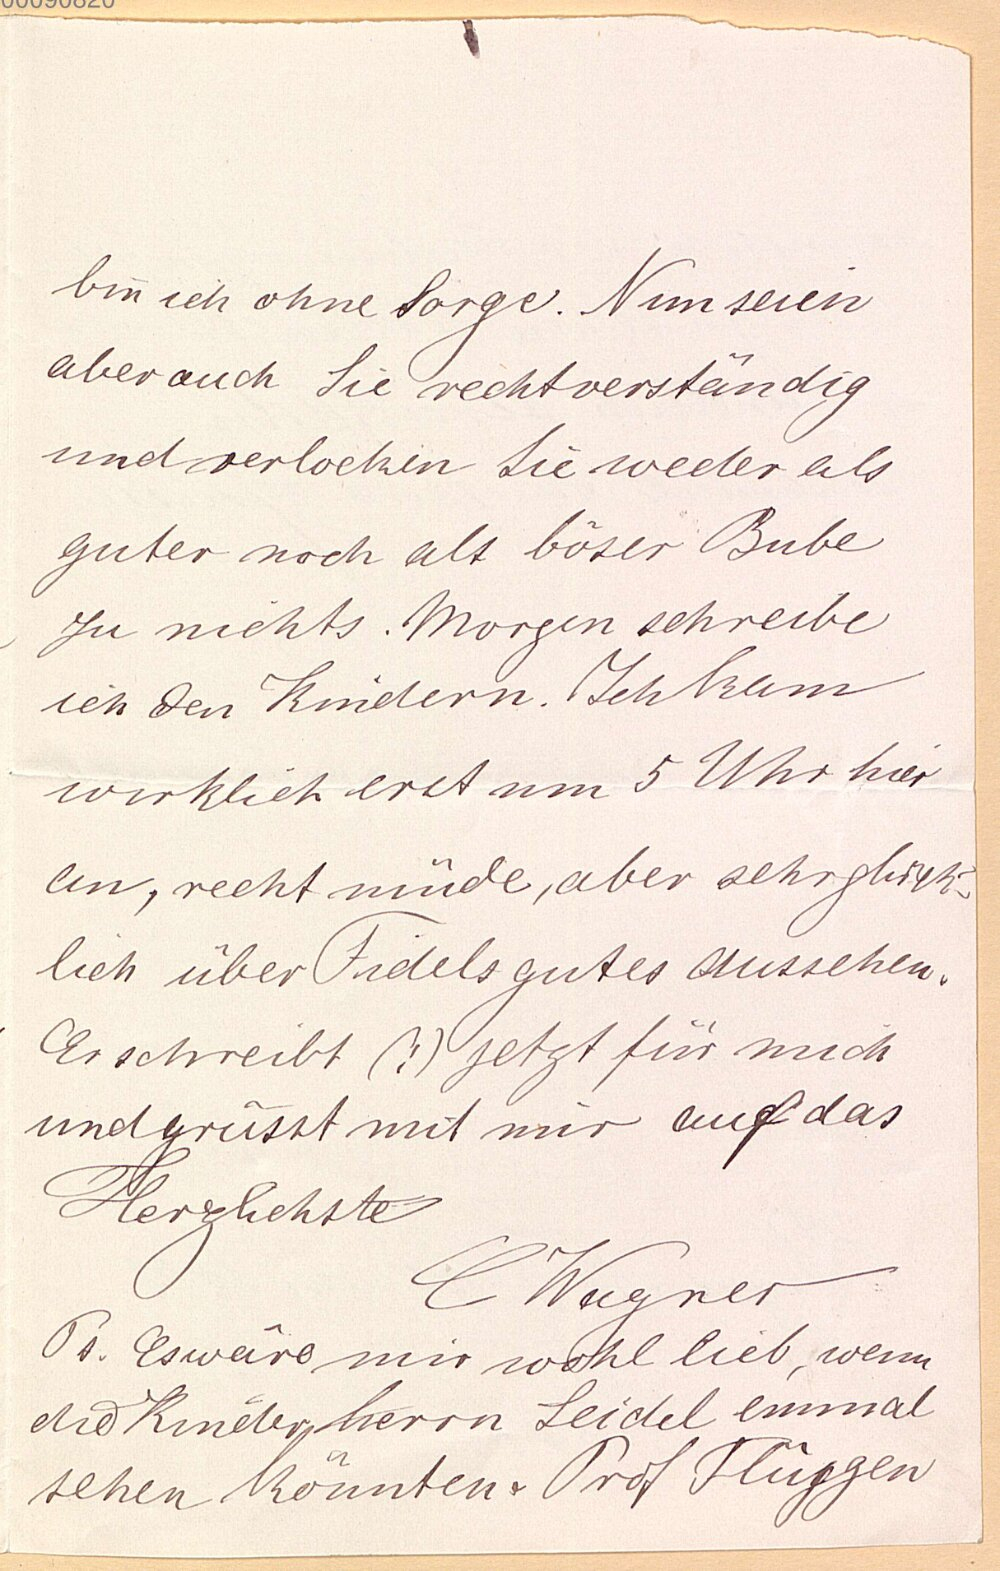 00090820
bin ich ohne Sorge. Nun seien
aber auch Sie recht verständig
und verlocken Sie weder als
guter noch als böser Bube
zu nichts. Morgen schreibe
ich den Kindern. Ich kam
wirklich erst um 5 Uhr hier
an, recht müde, aber sehr glück-
lich über Fidels gutes Aussehen.
Er schreibt (?) jetzt für mich
und grüsst mit mir auf das
Herzlichste
C Wagner
Ps. Es wäre mir wohl lieb, wenn
die Kinder Herrn Seidel einmal
sehen könnten. Prof Flüggen